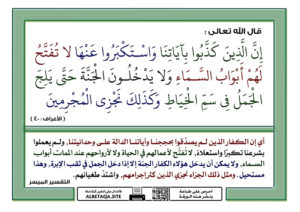 قال الله تعالى :
إِنَّ الَّذِينَ كَذَّبُوا بِآيَاتِنَا وَاسْتَكْبَرُوا عَنْهَا لَا تُفَتَّحُ
لَهُمْ أَبْوَابُ السَّمَاءِ وَلَا يَدْخُلُونَ الْجَنَّةَ حَتَّى يَلِجَ
الْجَمَلُ فِي سَمِّ الْخِيَاطِ وَكَذَلِكَ نَجْزِي الْمُجْرِمِينَ
(الأعراف : ٤٠)
أي إن الكفار الذين لم يصدِّقوا بحججنا وآياتنا الدالة على وحدانيتنا, ولم يعملوا
بشرعنا تكبرًا واستعلاءً, لا تُفتَّح لأعمالهم في الحياة ولا لأرواحهم عند الممات أبواب
السماء, ولا يمكن أن يدخل هؤلاء الكفار الجنة إلا إذا دخل الجمل في ثقب الإبرة, وهذا
مستحيل. ومثل ذلك الجزاء نجزي الذين كثر إجرامهم, واشتدَّ طغيانهم.
التفسير الميسر
ALBETAQA.SITE